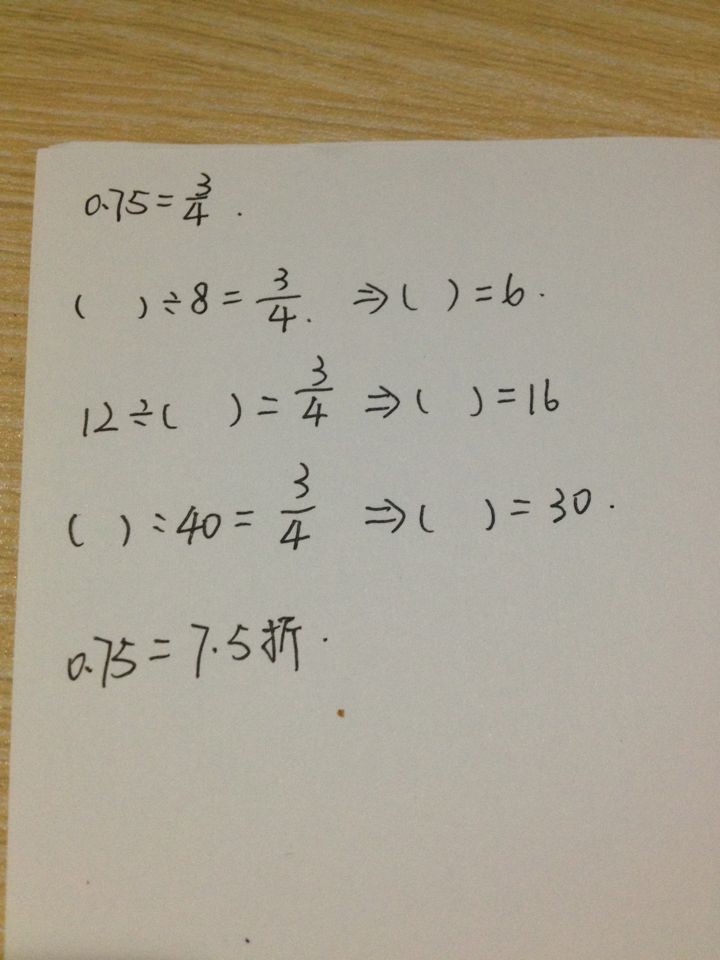 0.75=3/4.
( )÷8=3/4. ⇒( )=6.
12÷( )=3/4 ⇒( )=16
( ):40=3/4 ⇒( )=30.
0.75=7.5折.